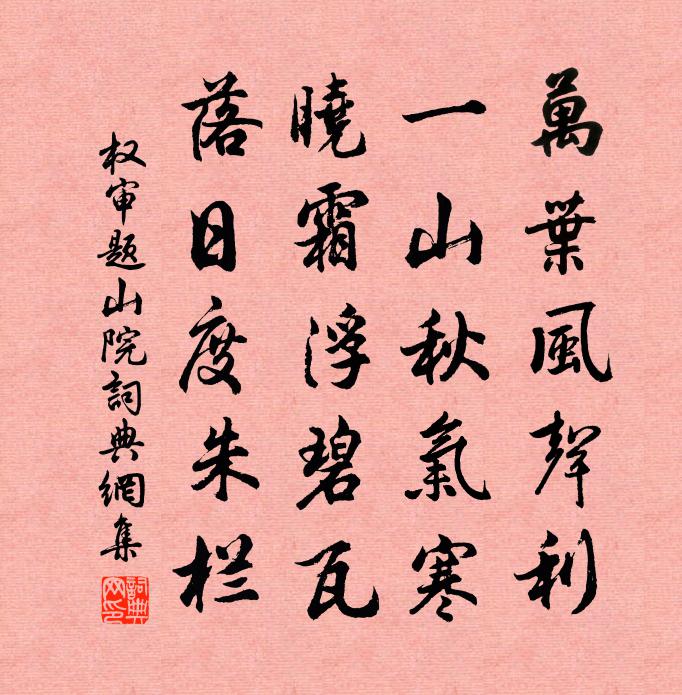 萬葉風聲利
一山秋氣寒
曉霜浮碧瓦
落日度朱栏
权审题山院詞典網集
詞典網印